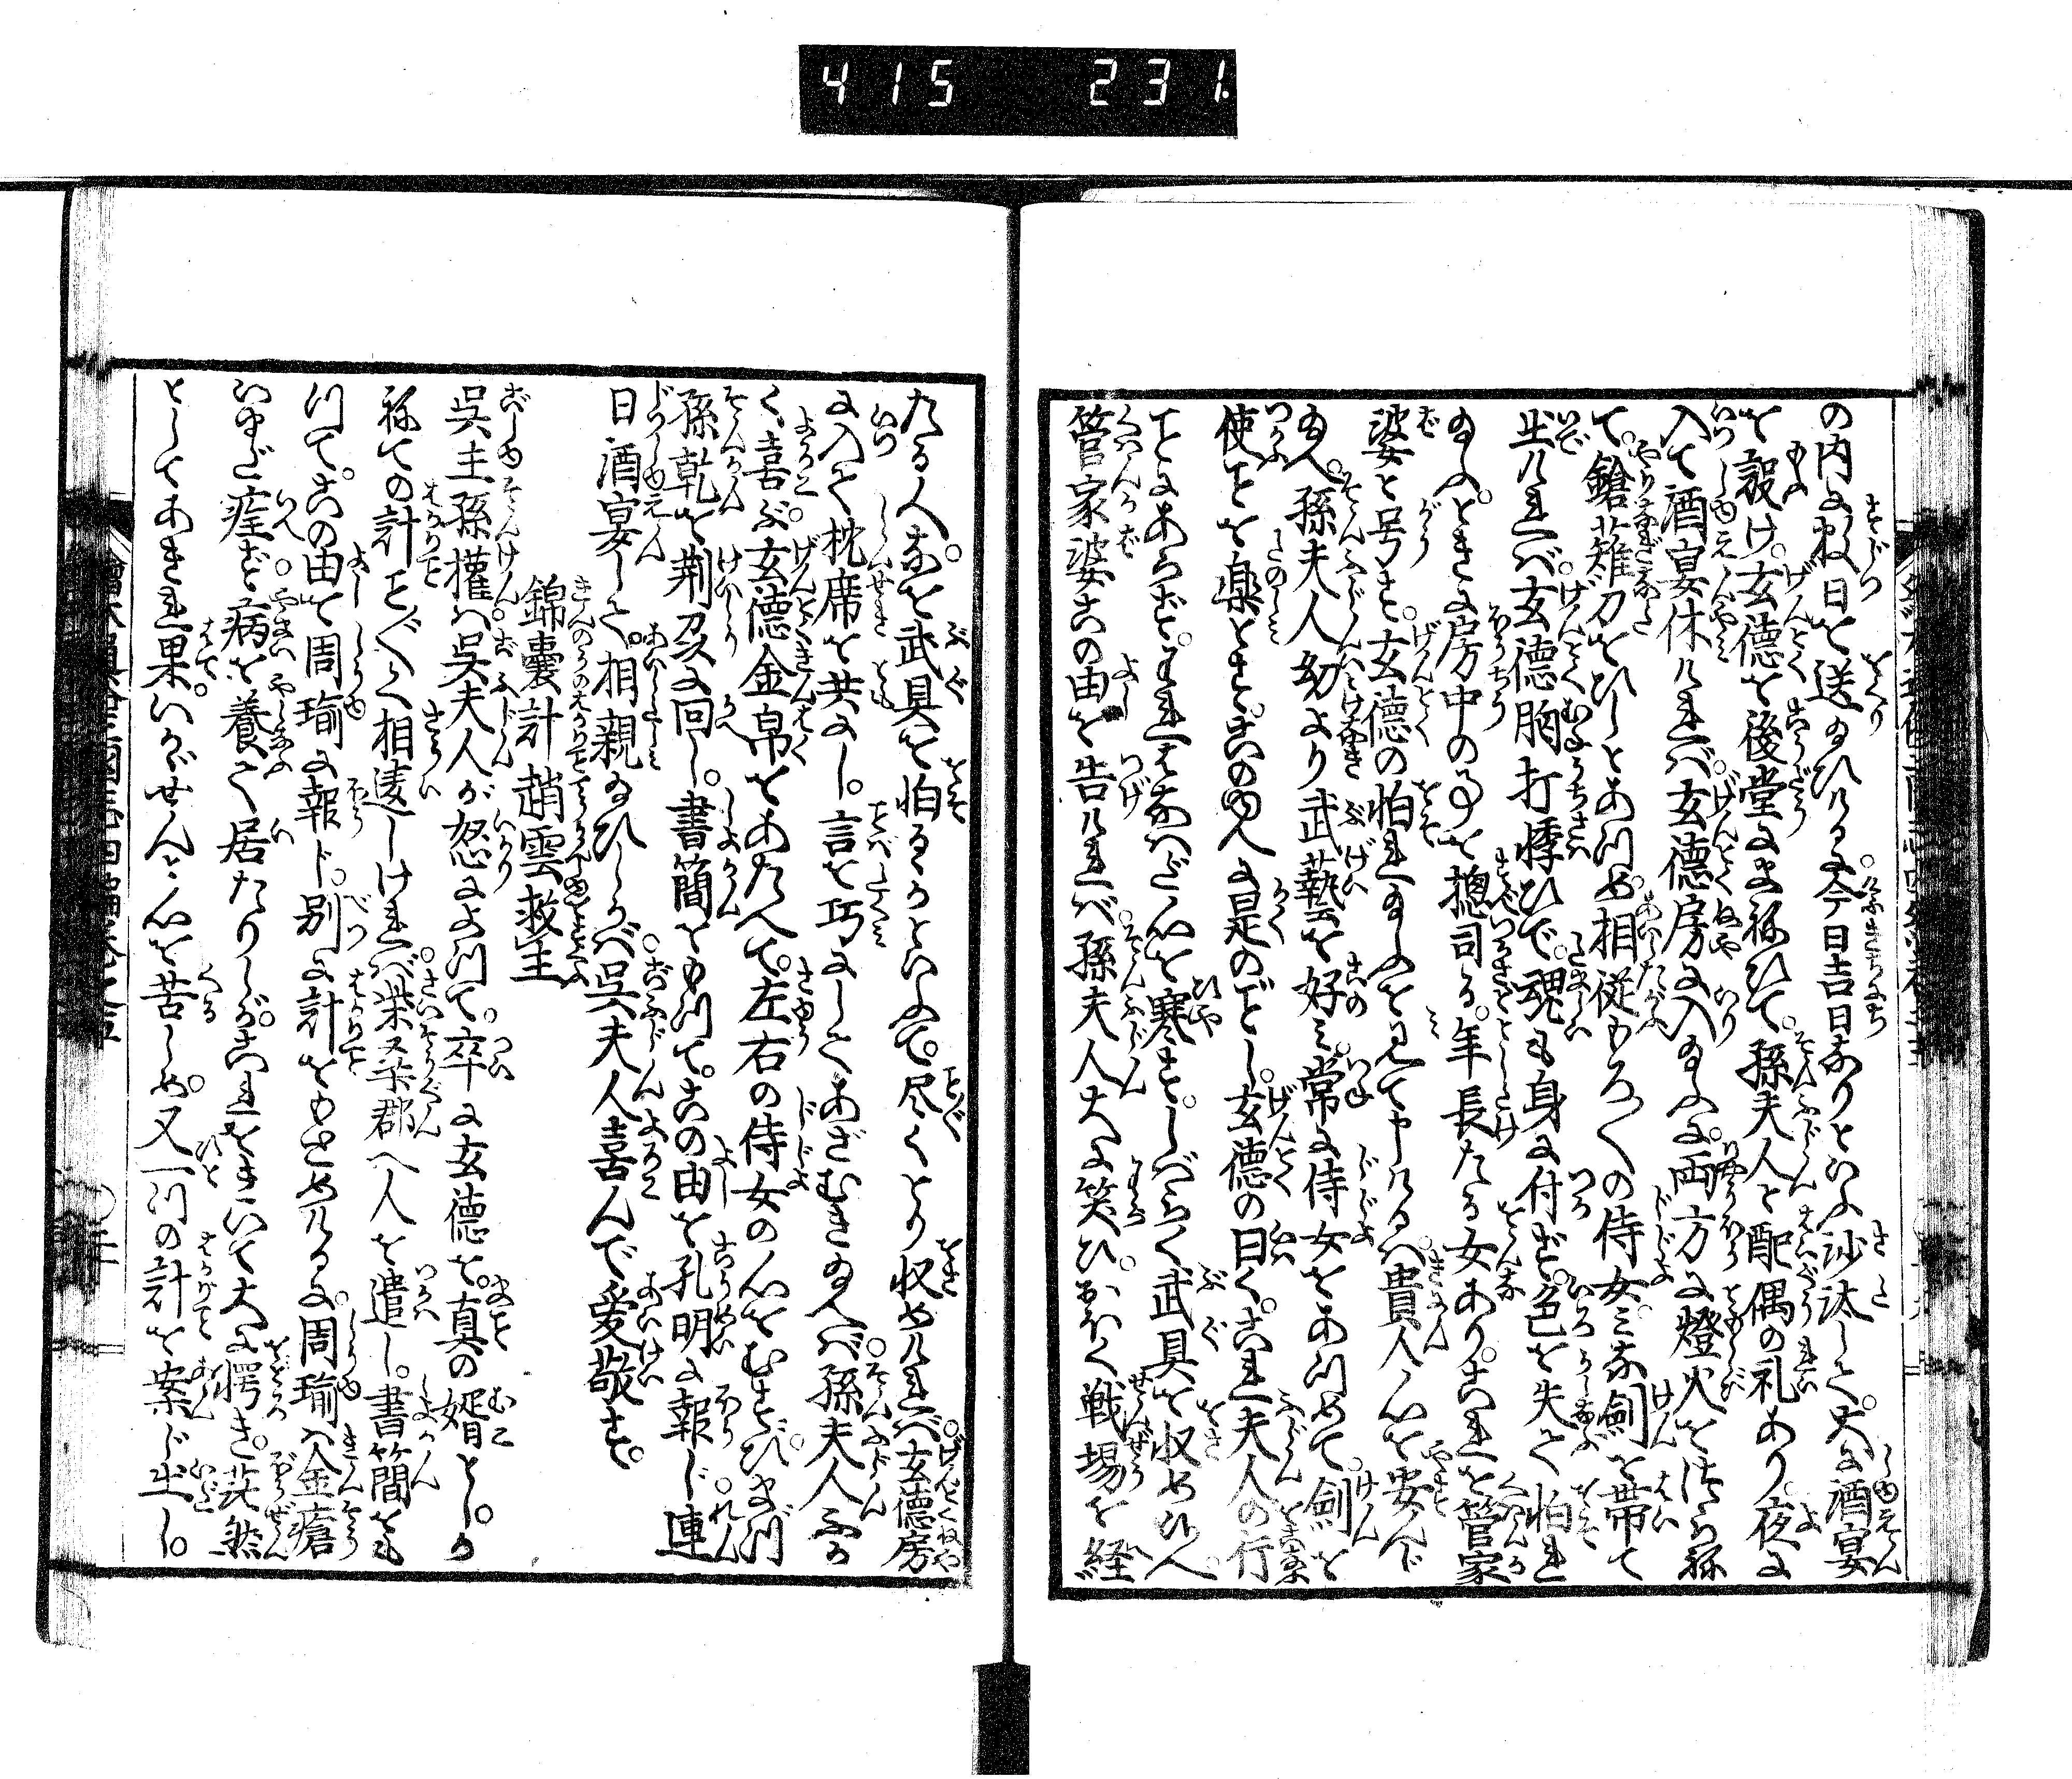 415 231.
の内に数日を送給ひけるに今日吉日なりといふ沙汰して。大に酒宴
を設け。玄徳を後堂にまねひて。孫夫人と配偶の礼あり。夜に
入て酒宴休ければ。玄徳房に入給ふに。両方に燈火をつらね
て。鎗薙刀をひしとあつめ。相従もろ〱の侍女。みな剣を帯て
出ければ。玄徳胸打悸ひで。魂も身に付ず。色を失て怕れ
給ふ。ときに房中の事を摠司る。年長たる女あり。これを管家
婆と号す。玄徳の怕れ給ふを見て申けるは。貴人心を安んじ
給へ。孫夫人幼より武藝を好み。常に侍女をあつめて。剣を
使ことを楽とす。この内人に是のごとし。玄徳の曰く。これ夫人の行
ことにあらず。われはなはだ心を寒す。しばらく武具を収め給へ。
管家婆この由を告ければ。孫夫人大に笑ひ。おほく戦場を経
たる人。なを武具を怕るゝかといふて。尽くとり収めければ。玄徳房
に入て枕席を共にし。言を巧にしてあざむき給へば。孫夫人ふか
く喜ぶ。玄徳金帛をあたへて。左右の侍女の心をむすび。まづ
孫乾を荊州に回し。書簡をもつて。この由を孔明に報じ。連
日酒宴して。相親給ひしかば。呉夫人喜んで愛敬す。
錦嚢計趙雲救主
呉主孫權は。呉夫人が怒によつて。卒に玄徳を。真の婿とし。か
ねての計こと〲く相違しければ。柴桑郡へ人を遣し。書簡をも
つて。この由を周瑜に報じ。別に計をもとめけるに。周瑜は金瘡
いまだ痊ず。病を養て居たりしが。これをきいて大に愕き。茫然
としてあきれ果。いかゞせんと心を苦しめ。又一つの計を案じ出し。